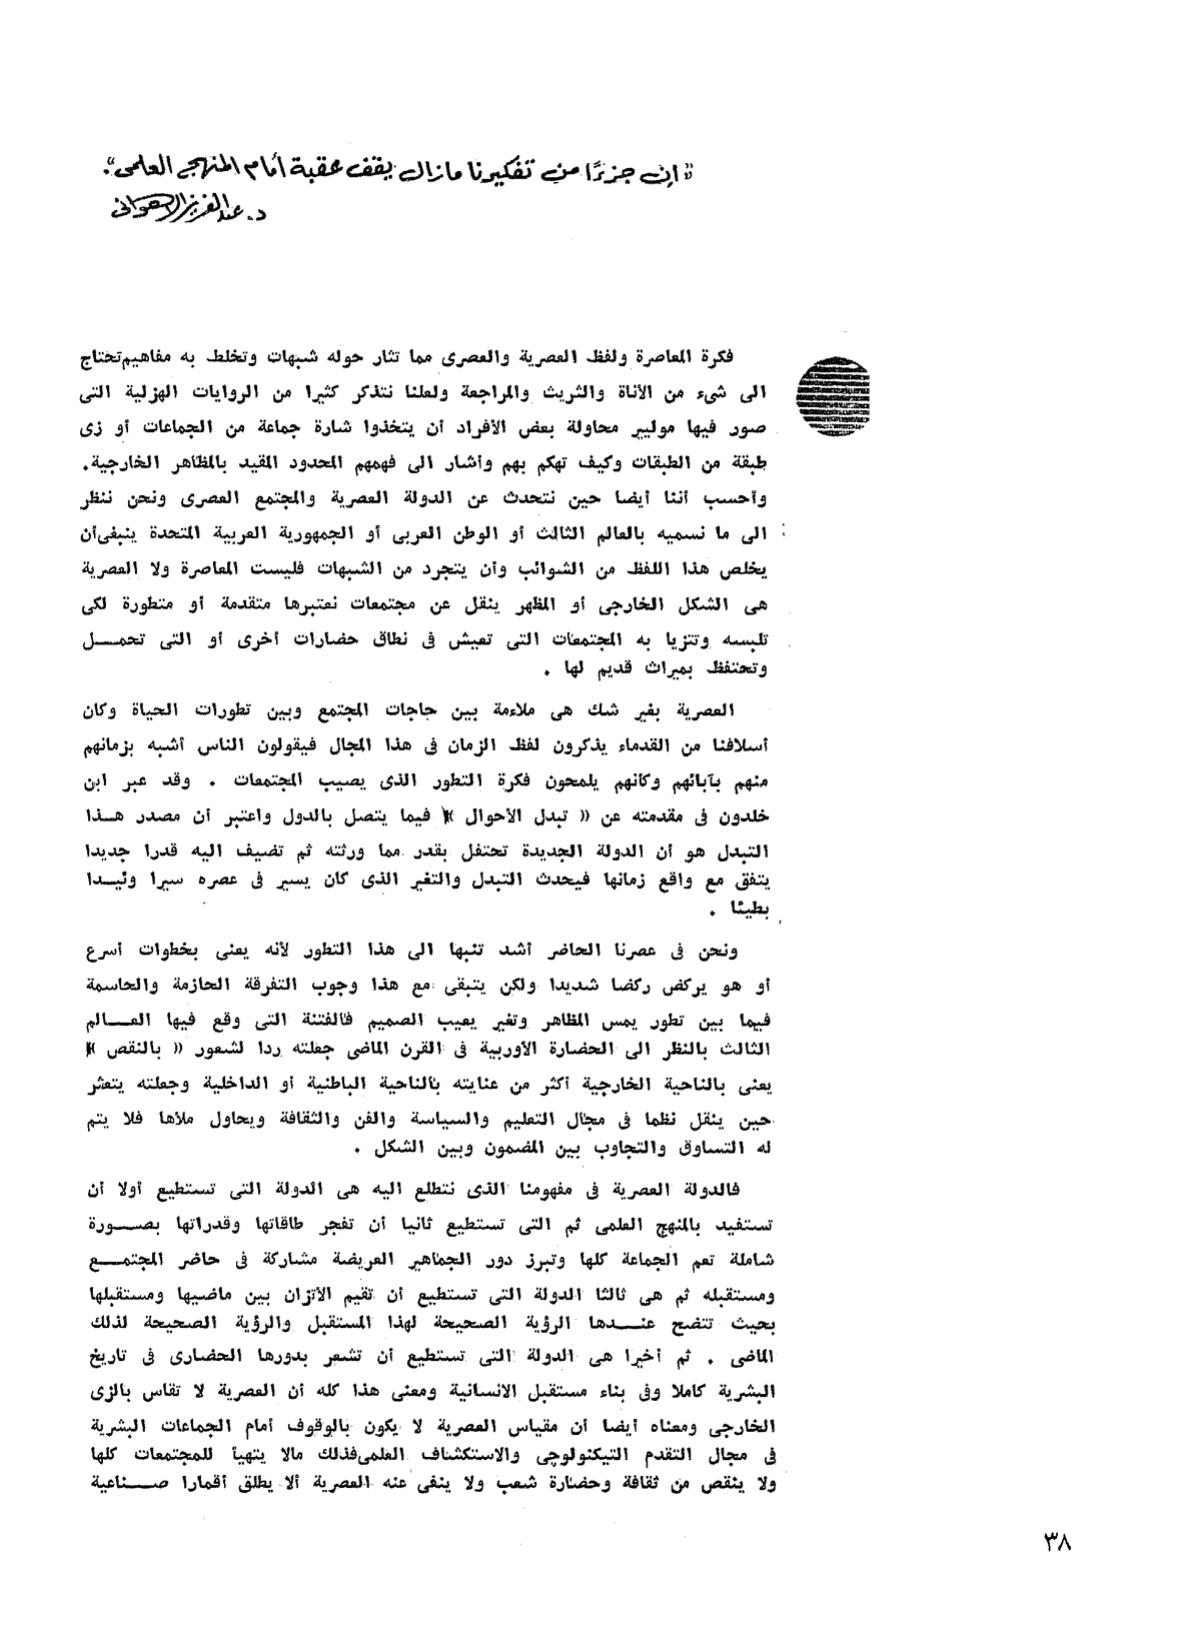 «إن جزءًا من تفكيرنا مازال يقف عقبة أمام المنهج العلمى».
د. عبد العزيز الأهوانى
فكرة المعاصرة ولفظ العصرية والعصرى مما تثار حوله شبهات وتخلط به مفاهيم تحتاج
الى شىء من الأناة والتريث والمراجعة ولعلنا نتذكر كثيرا من الروايات الهزلية التى
صور فيها موليير محاولة بعض الأفراد أن يتخذوا شارة جماعة من الجماعات أو زى
طبقة من الطبقات وكيف تهكم بهم وأشار الى فهمهم المحدود المقيد بالمظاهر الخارجية.
وأحسب أننا أيضا حين نتحدث عن الدولة العصرية والمجتمع العصرى ونحن ننظر
الى ما نسميه بالعالم الثالث أو الوطن العربى أو الجمهورية العربية المتحدة ينبغى أن
يخلص هذا اللفظ من الشوائب وأن يتجرد من الشبهات فليست المعاصرة ولا العصرية
هى الشكل الخارجى أو المظهر ينقل عن مجتمعات نعتبرها متقدمة أو متطورة لكى
تلبسه وتتزيا به المجتمعات التى تعيش فى نطاق حضارات أخرى أو التى تحمـــل
وتحتفظ بميراث قديم لها .
العصرية بغير شك هى ملاءمة بين حاجات المجتمع وبين تطورات الحياة وكان
أسلافنا من القدماء يذكرون لفظ الزمان فى هذا المجال فيقولون الناس أشبه بزمانهم
منهم بآبائهم وكأنهم يلمحون فكرة التطور الذى يصيب المجتمعات . وقد عبر ابن
خلدون فى مقدمته عن « تبدل الأحوال » فيما يتصل بالدول واعتبر أن مصدر هــذا
التبدل هو أن الدولة الجديدة تحتفل بقدر مما ورثته ثم تضيف اليه قدرا جديدا
يتفق مع واقع زمانها فيحدث التبدل والتغير الذى كان يسير فى عصره سيرا وئيـدا
بطيئا .
ونحن فى عصرنا الحاضر أشد تنبها الى هذا التطور لأنه يعنى بخطوات أسرع
أو هو يركض ركضا شديدا ولكن يتبقى مع هذا وجوب التفرقة الحازمة والحاسمة
فيما بين تطور يمس المظاهر وتغير يعيب الصميم فالفتنة التى وقع فيها العـــالم
الثالث بالنظر الى الحضارة الأوربية فى القرن الماضى جعلته ردا لشعور « بالنقص »
يعنى بالناحية الخارجية أكثر من عنايته بالناحية الباطنية أو الداخلية وجعلته يتعثر
حين ينقل نظما فى مجال التعليم والسياسة والفن والثقافة ويحاول ملأها فلا يتم
له التساوق والتجاوب بين المضمون وبين الشكل .
فالدولة العصرية فى مفهومنا الذى نتطلع اليه هى الدولة التى تستطيع أولا أن
تستفيد بالمنهج العلمى ثم التى تستطيع ثانيا أن تفجر طاقاتها وقدراتها بصـــورة
شاملة تعم الجماعة كلها وتبرز دور الجماهير العريضة مشاركة فى حاضر المجتمـــع
ومستقبله ثم هى ثالثا الدولة التى تستطيع أن تقيم الاتزان بين ماضيها ومستقبلها
بحيث تتضح عنـــدها الرؤية الصحيحة لهذا المستقبل والرؤية الصحيحة لذلك
الماضى . ثم أخيرا هى الدولة التى تستطيع أن تشعر بدورها الحضارى فى تاريخ
البشرية كاملا وفى بناء مستقبل الانسانية ومعنى هذا كله أن العصرية لا تقاس بالزى
الخارجى ومعناه أيضا أن مقياس العصرية لا يكون بالوقوف أمام الجماعات البشرية
فى مجال التقدم التيكنولوجى والاستكشاف العلمى فذلك مالا يتهيأ للمجتمعات كلها
ولا ينقص من ثقافة وحضارة شعب ولا ينفى عنه العصرية ألا يطلق أقمارا صـــناعية
٣٨